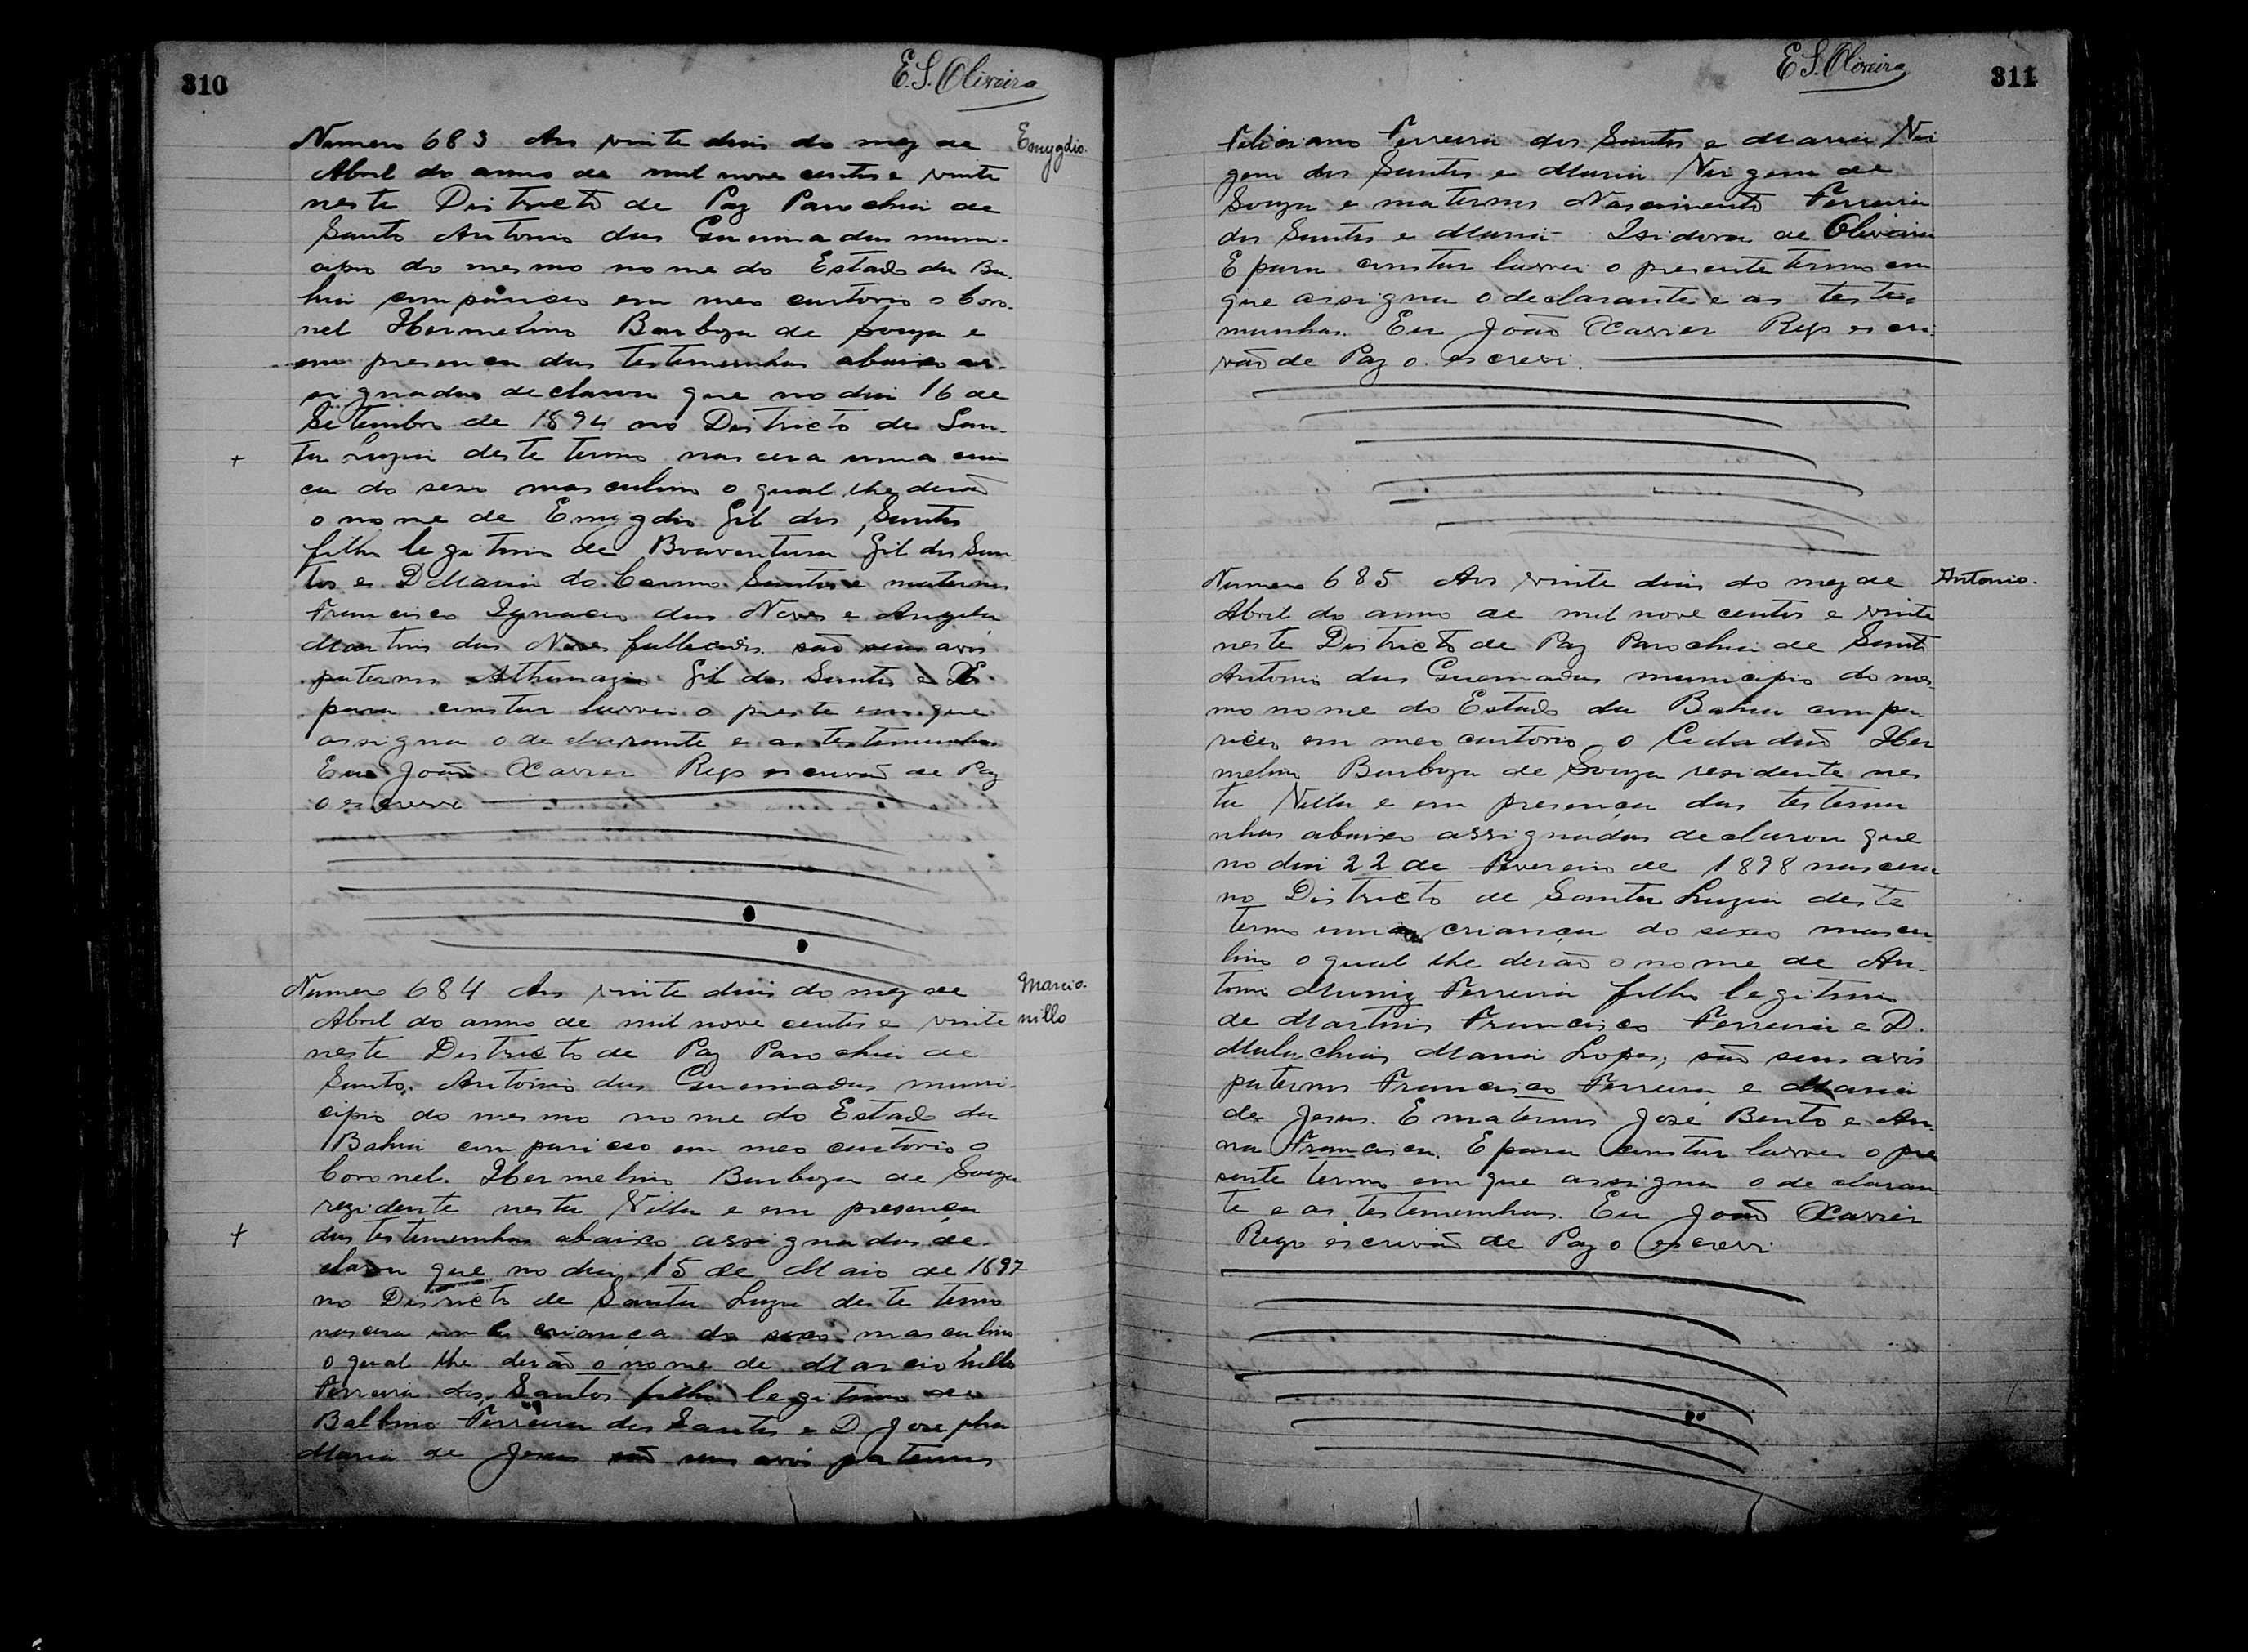 310
E.S. Oliveira
Numero 683 Aos vinte dois do mez de
Emygdio.
Abril do anno de mil nove centos e vinte
neste Districto de Paz Parochia de
Santo Antonio das Queimadas muni-
cipio do mesmo nome do Estado da Ba-
hia compareceo em meo cartorio o Coro-
nel Hermelino Barboza de Souza e
em presença das testemunhas abaixo as-
signadas declarou que no dia 16 de
Setembro de 1894 no Districto de San-
ta Luzia deste termo nascera uma crian
ca do sexo masculino o qual lhe derão
o nome de Emygdio Gil dos Santos
filho legitimo de Boaventura Gil dos San
tos e D Maria do Carmo Santos e maternos
Francisco Ignacio das Neves e Angela
Martins das Neves fallecidos são seus avós
paternos Athanazio Gil dos Santos e D E
para constar lavrei o preste em que
assigna o declarante e as testemunhas
Eu João Xavier Rego escrivão de Paz
o escrevi
Numero 684 Aos vinte dois do mez de
Marcio-
nillo
Abril do anno de mil nove centos e vinte
neste Districto de Paz Parochia de
Santo Antonio das Queimadas muni-
cipio do mesmo nome do Estado da
Bahia compariceo em meo cartorio o
Coronel Hermelino Barboza de Souza
rezidente nesta Villa e em presença
das testemunhas abaixo assignadas de-
clarou que no dia 15 de Maio de 1897
no Districto de Santa Luzia deste termo
nascera uma criança do sexo masculino
o qual lhe derão o nome de Marcionillo
Ferreira dos Santos filho legitimo de
Balbino Ferreira dos Santos e D Josepha
Maria de Jesus são seus avós paternos
E S. Oliveira
311
Feliciano Ferreira dos Santos e Maria Vir
gem dos Santos e Maria Virgem de
Souza e maternos Nascimento Ferreira
dos Santos e Maria Isidora de Oliveira
E para constar lavrei o presente termo em
que assigna o declarante e as teste-
munhas. Eu João Xavier Rego escri-
vão de Paz o escrevi.
Numero 685 Aos vinte dois do mez de
Antonio.
Abril do anno de mil nove centos e vinte
neste Districto de Paz Parochia de Santo
Antonio das Queimadas municipio do mes-
mo nome do Estado da Bahia compa-
riceo em meo cartorio o Cidadão Her
melino Barboza de Souza residente nes
ta Villa e em presença das testemu
nhas abaixo assignadas declarou que
no dia 22 de Fevereiro de 1898 nascera
no Districto de Santa Luzia deste
termo uma criança do sexo mascu-
lino o qual lhe derão o nome de An-
tonio Muniz Ferreira filho legitimo
de Martins Francisco Ferreira e D.
Malachias Maria Lopes, são seus avós
paternos Francisco Ferreira e Maria
de Jesus. E maternos José Bento e An-
na Francisca. E para constar lavrei o pre
sente termo em que assigna o declaran
te e as testemunhas. Eu João Xavier
Rego escrivão de Paz o escrevi